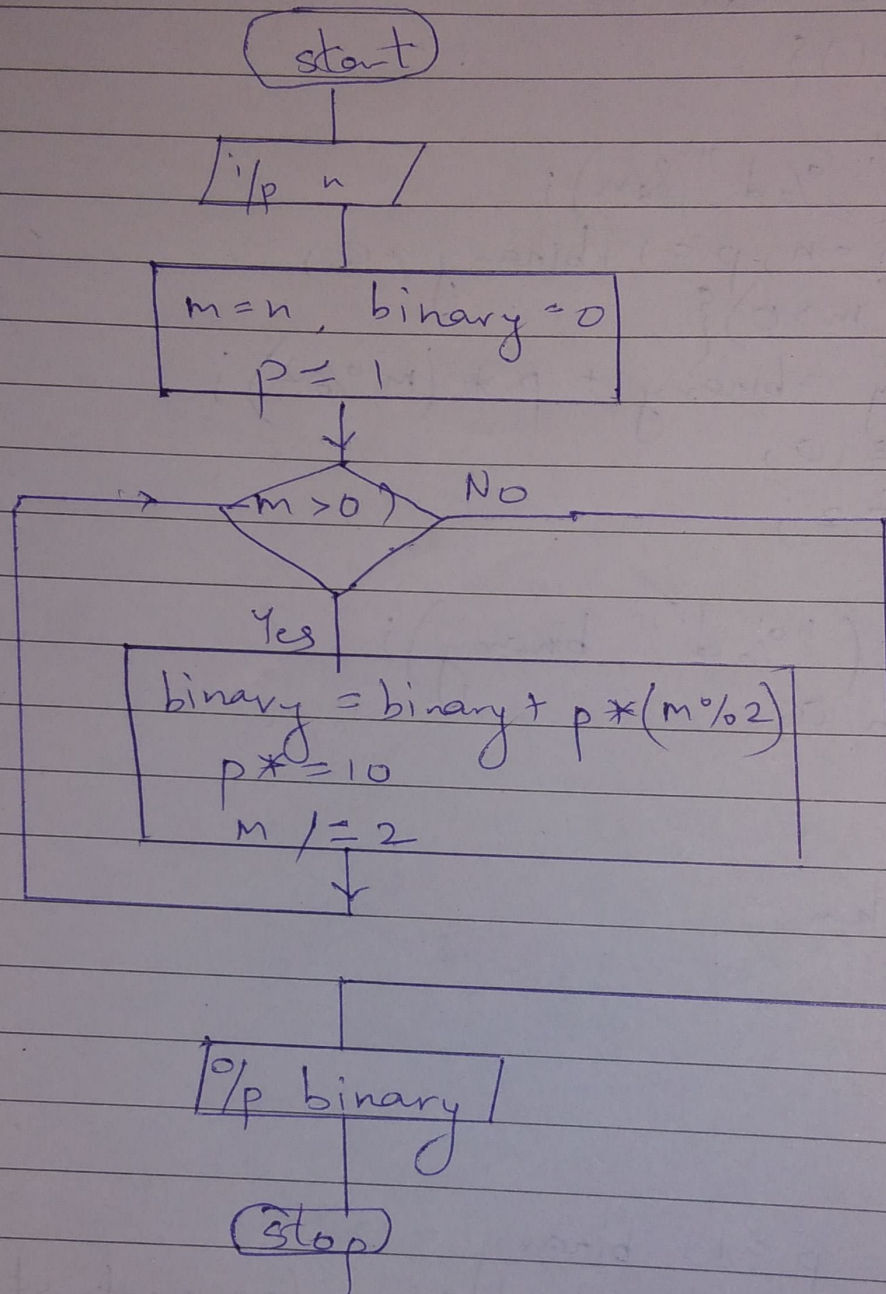 start
i/p n
m=n, binary=0
p=1
m>0
No
Yes
binary = binary + p*(m%2)
p*=10
m /= 2
o/p binary
stop